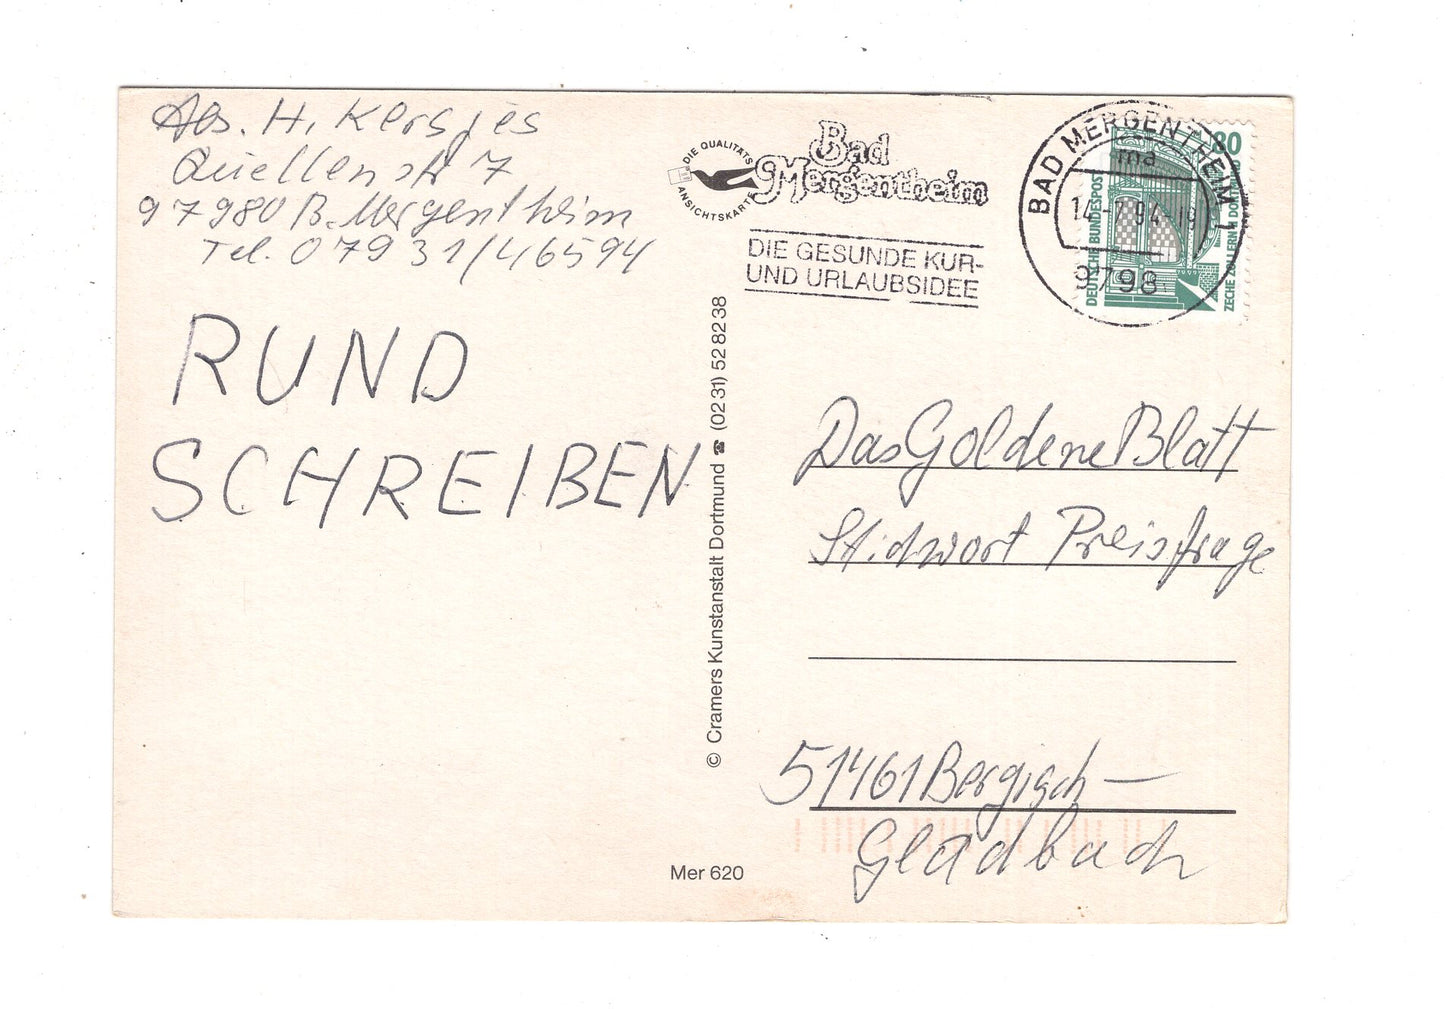 Abs. H. Kersjes
Quellenstr 7
97980 B. Mergentheim
Tel. 07931/46594
RUND
SCHREIBEN
DIE QUALITÄTS
ANSICHTSKARTE
Bad
Mergentheim
DIE GESUNDE KUR-
UND URLAUBSIDEE
BAD MERGENTHEIM 1
ma
14.-7.94.-19
9798
DEUTSCHE BUNDESPOST
80
ZECHE ZOLLERN II DORTMUND
© Cramers Kunstanstalt Dortmund ☎ (0231) 528238
Das Goldene Blatt
Stichwort Preisfrage
51461 Bergisch–
Gladbach
Mer 620